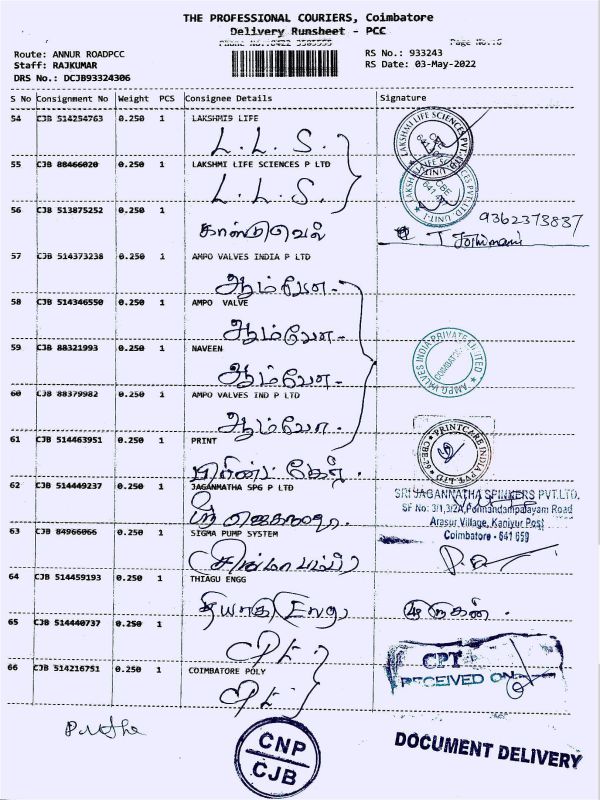 THE PROFESSIONAL COURIERS, Coimbatore
Delivery Runsheet - PCC
Phone No.:0422 3505555 Page No.:6
Route: ANNUR ROADPCC RS No.: 933243
Staff: RAJKUMAR RS Date: 03-May-2022
DRS No.: DCJB93324306
S No Consignment No Weight PCS Consignee Details Signature
54 CJB 514254763 0.250 1 LAKSHMI9 LIFE
L. L. S.
55 CJB 88466020 0.250 1 LAKSHMI LIFE SCIENCES P LTD
L. L. S.
56 CJB 513875252 0.250 1
9362373837
57 CJB 514373238 0.250 1 AMPO VALVES INDIA P LTD
58 CJB 514346550 0.250 1 AMPO VALVE
59 CJB 88321993 0.250 1 NAVEEN
60 CJB 88379982 0.250 1 AMPO VALVES IND P LTD
AMPO VALVES INDIA PRIVATE LIMITED
COIMBATORE
61 CJB 514463951 0.250 1 PRINT
PRINTCARE INDIA PVT.LTD.
பிரிண்ட் கேர்
62 CJB 514449237 0.250 1 JAGANMATHA SPG P LTD
SRI JAGANNATHA SPINNERS PVT.LTD.
SF No: 3/1,3/2A,Ponnandampalayam Road
Arasur Village, Kaniyur Post
Coimbatore - 641 659
63 CJB 84966066 0.250 1 SIGMA PUMP SYSTEM
64 CJB 514459193 0.250 1 THIAGU ENGG
தியாகு Engg முருகன்.
65 CJB 514440737 0.250 1
CPT
RECEIVED ON
66 CJB 514216751 0.250 1 COIMBATORE POLY
CNP
CJB
DOCUMENT DELIVERY